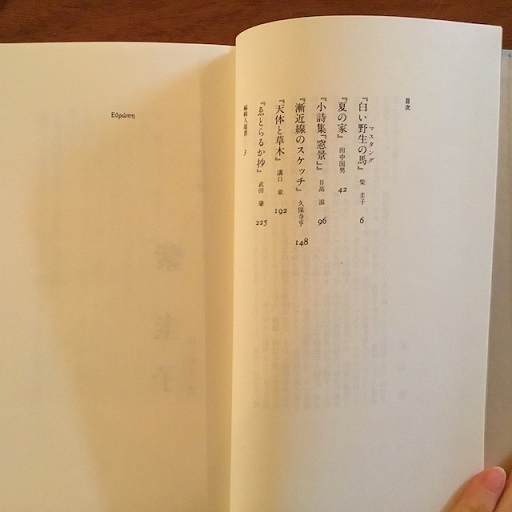 目次
マスタング
『白い野生の馬』 柴 圭子 6
『夏の家』 田中国男 42
『小詩集「窓景」』 日高 滋 96
『漸近線のスケッチ』 久保寺亨 148
『天体と草木』 溝口 章 192
『ゑとらるか抄』 武田 肇 225
編輯人叢書・3
Εὐρώπη